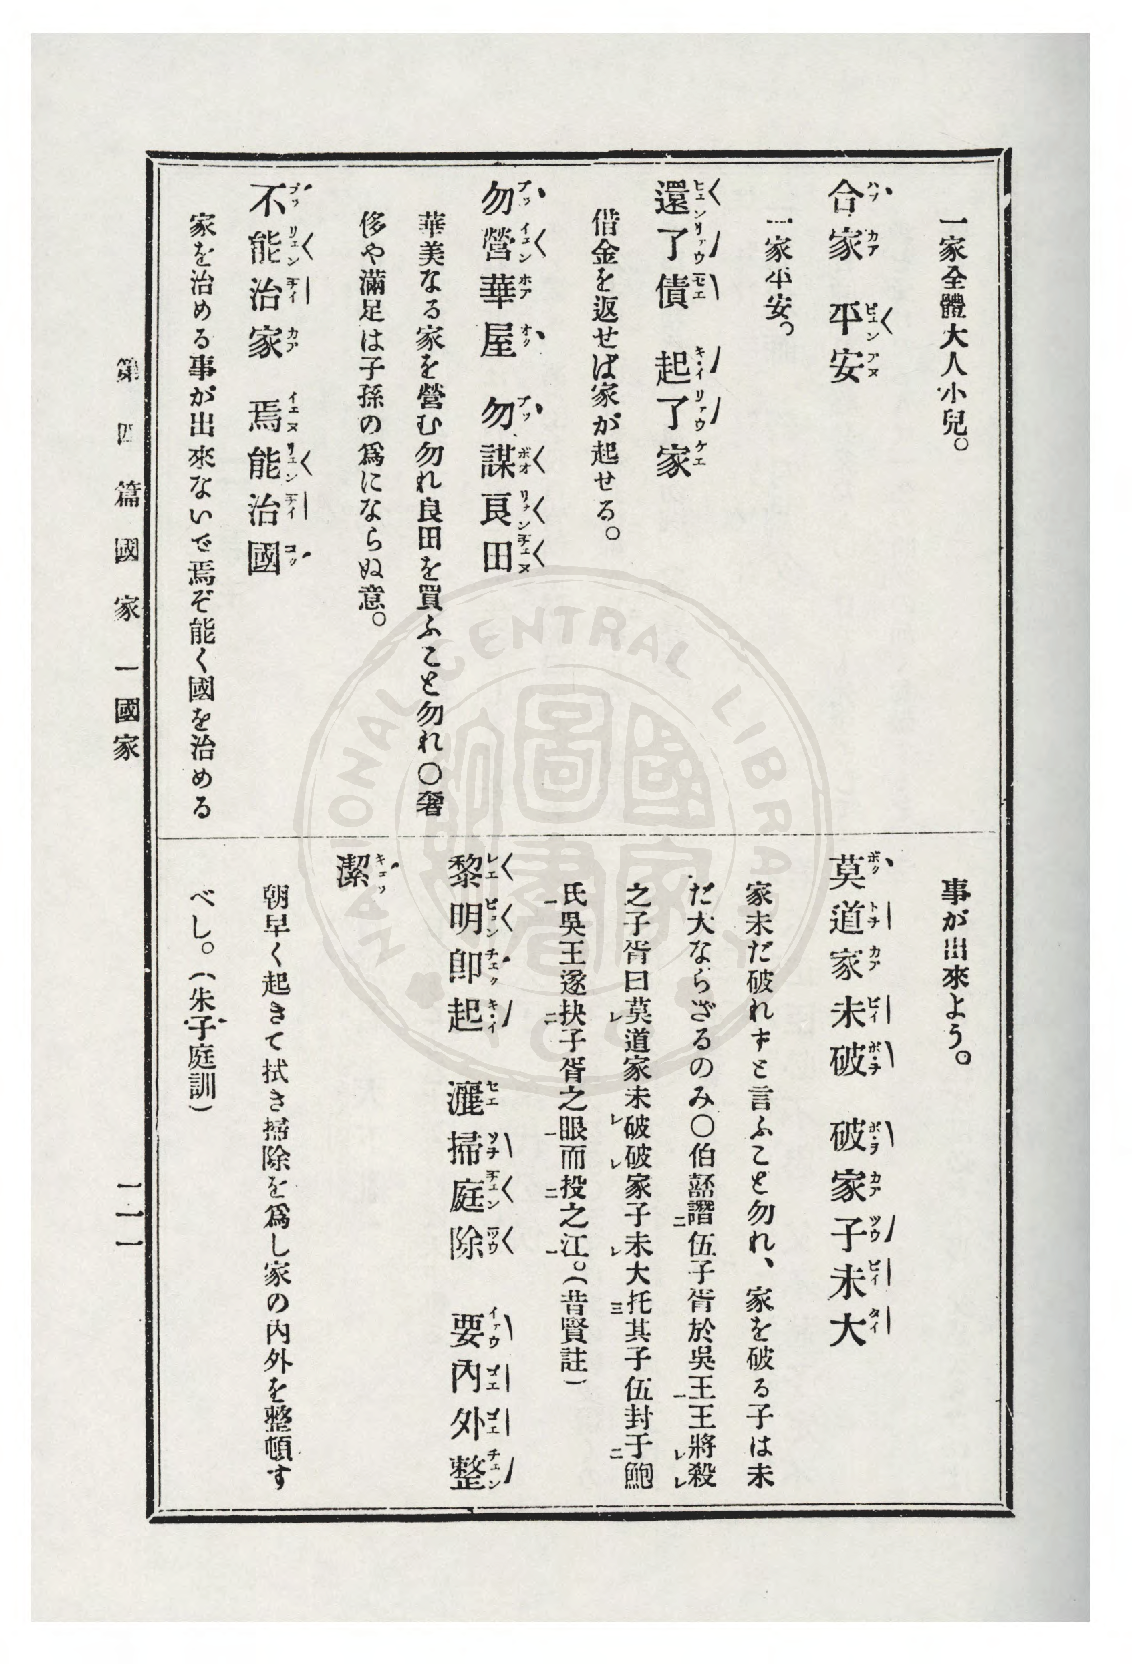 一家全體大人小兒。
合家　平安
一家平安。
還了債　起了家
借金を返せば家が起せる。
勿營華屋　勿謀良田
華美なる家を營む勿れ良田を買ふこと勿れ〇奢
侈や滿足は子孫の爲にならぬ意。
不能治家　焉能治國
家を治める事が出來ないで焉ぞ能く國を治める
事が出來よう。
莫道家未破　破家子未大
家未だ破れずと言ふこと勿れ、家を破る子は未
だ大ならざるのみ〇伯嚭譖伍子胥於吳王王將殺
之子胥曰莫道家未破破家子未大托其子伍封于鮑
氏吳王遂抉子胥之眼而投之江。(昔賢註)
黎明卽起　灑掃庭除　要內外整
潔
朝早く起きて拭き掃除を爲し家の內外を整頓す
べし。(朱子庭訓)
第四篇　國家　一國家
二一
NATIONAL CENTRAL LIBRARY
國家圖書館